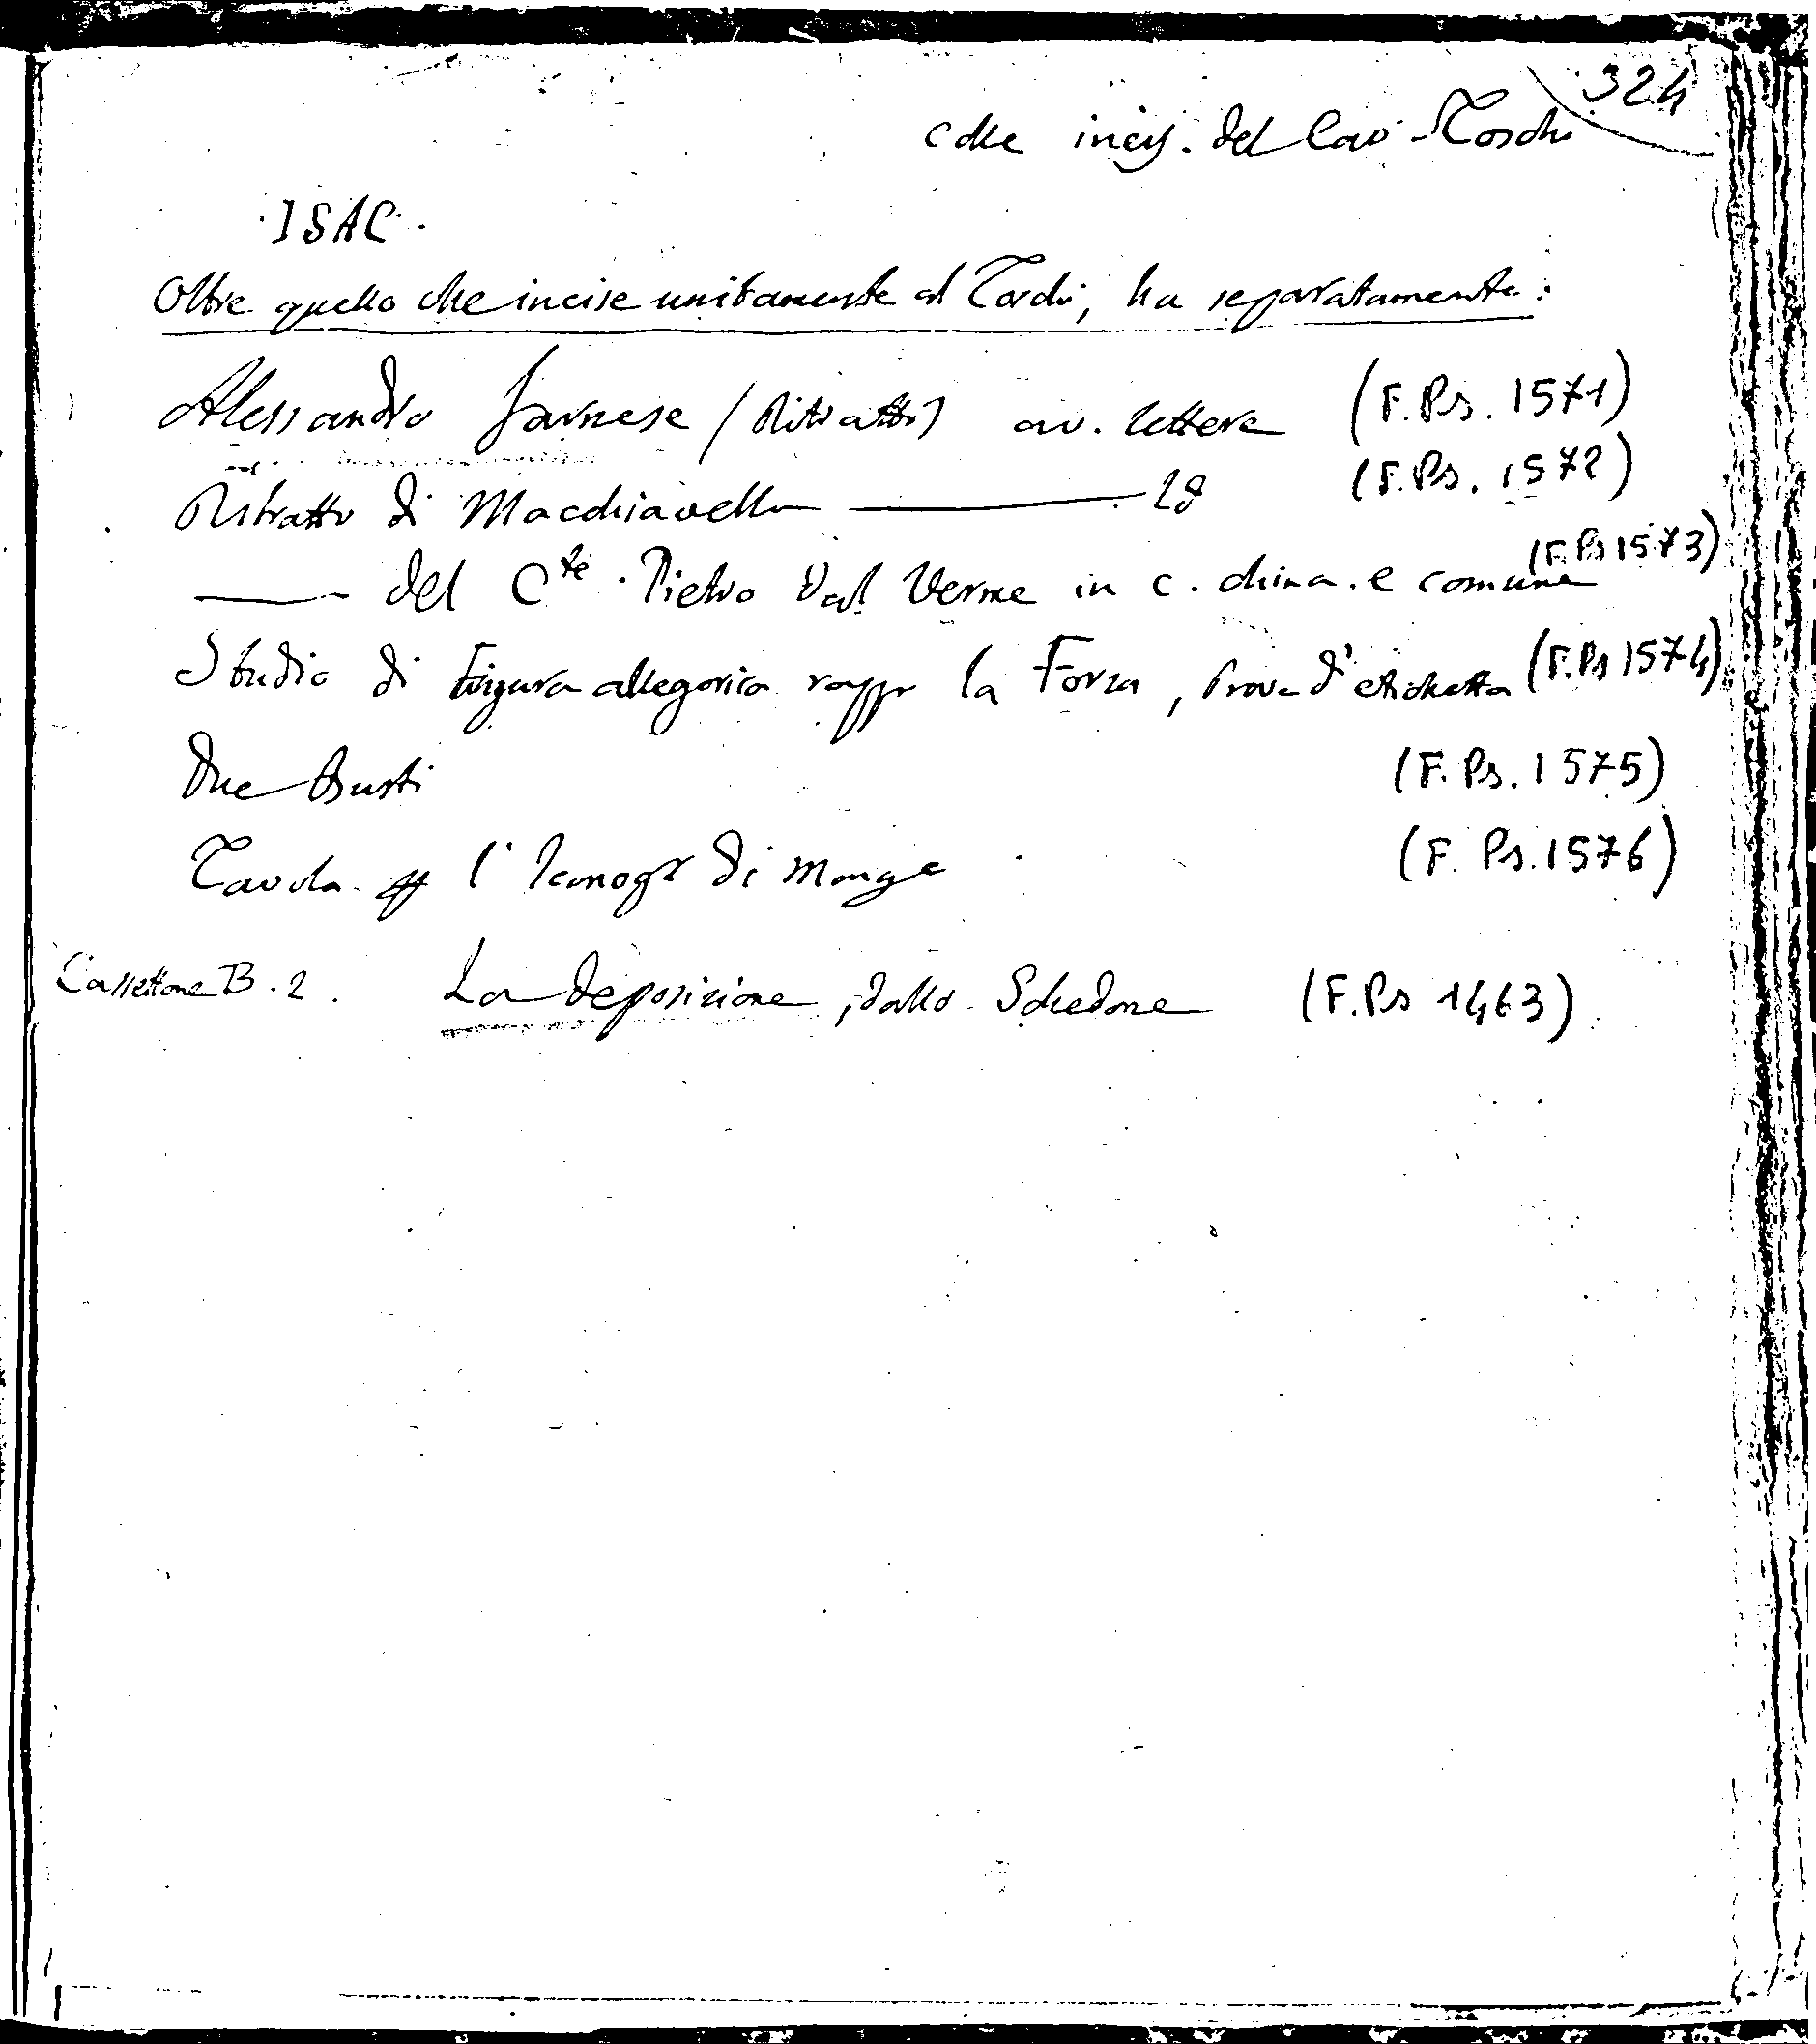 324
colle incis. del Cav. Toschi
ISAC.
Oltre quello che incise unitamente al Toschi, ha separatamente:
Alessandro Farnese (Ritratto) av. lettera (F.Ps. 1571)
Ritratto di Macchiavello (F.Ps. 1572)
del Cte. Pietro Dal Verme in c. china. e comune (F.Ps 1573)
Studio di Figura allegorica rappr la Forza, Prova d'etichetta (F.Ps 1574)
Due Busti (F. Ps. 1575)
Tavola l'Iconogr di Monge (F. Ps. 1576)
Cassettone B. 2. La deposizione, dallo Schedone (F.Ps 1463)